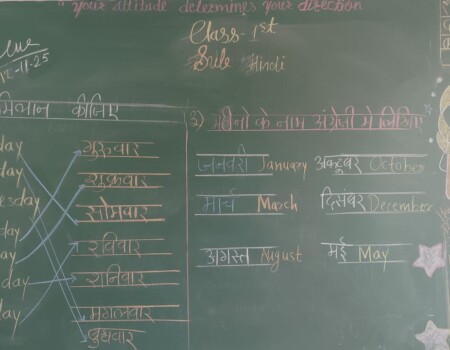 "your attitude determines your direction
Class-1st
Sub Hindi
12-11-25
मिलान कीजिए
day
गुरुवार
day
शुक्रवार
sday
सोमवार
day
रविवार
day
शनिवार
day
मंगलवार
day
बुधवार
2) महीनो के नाम अंग्रेजी मे लिखिए
जनवरी January अक्टूबर October
मार्च March दिसंबर December
अगस्त August मई May